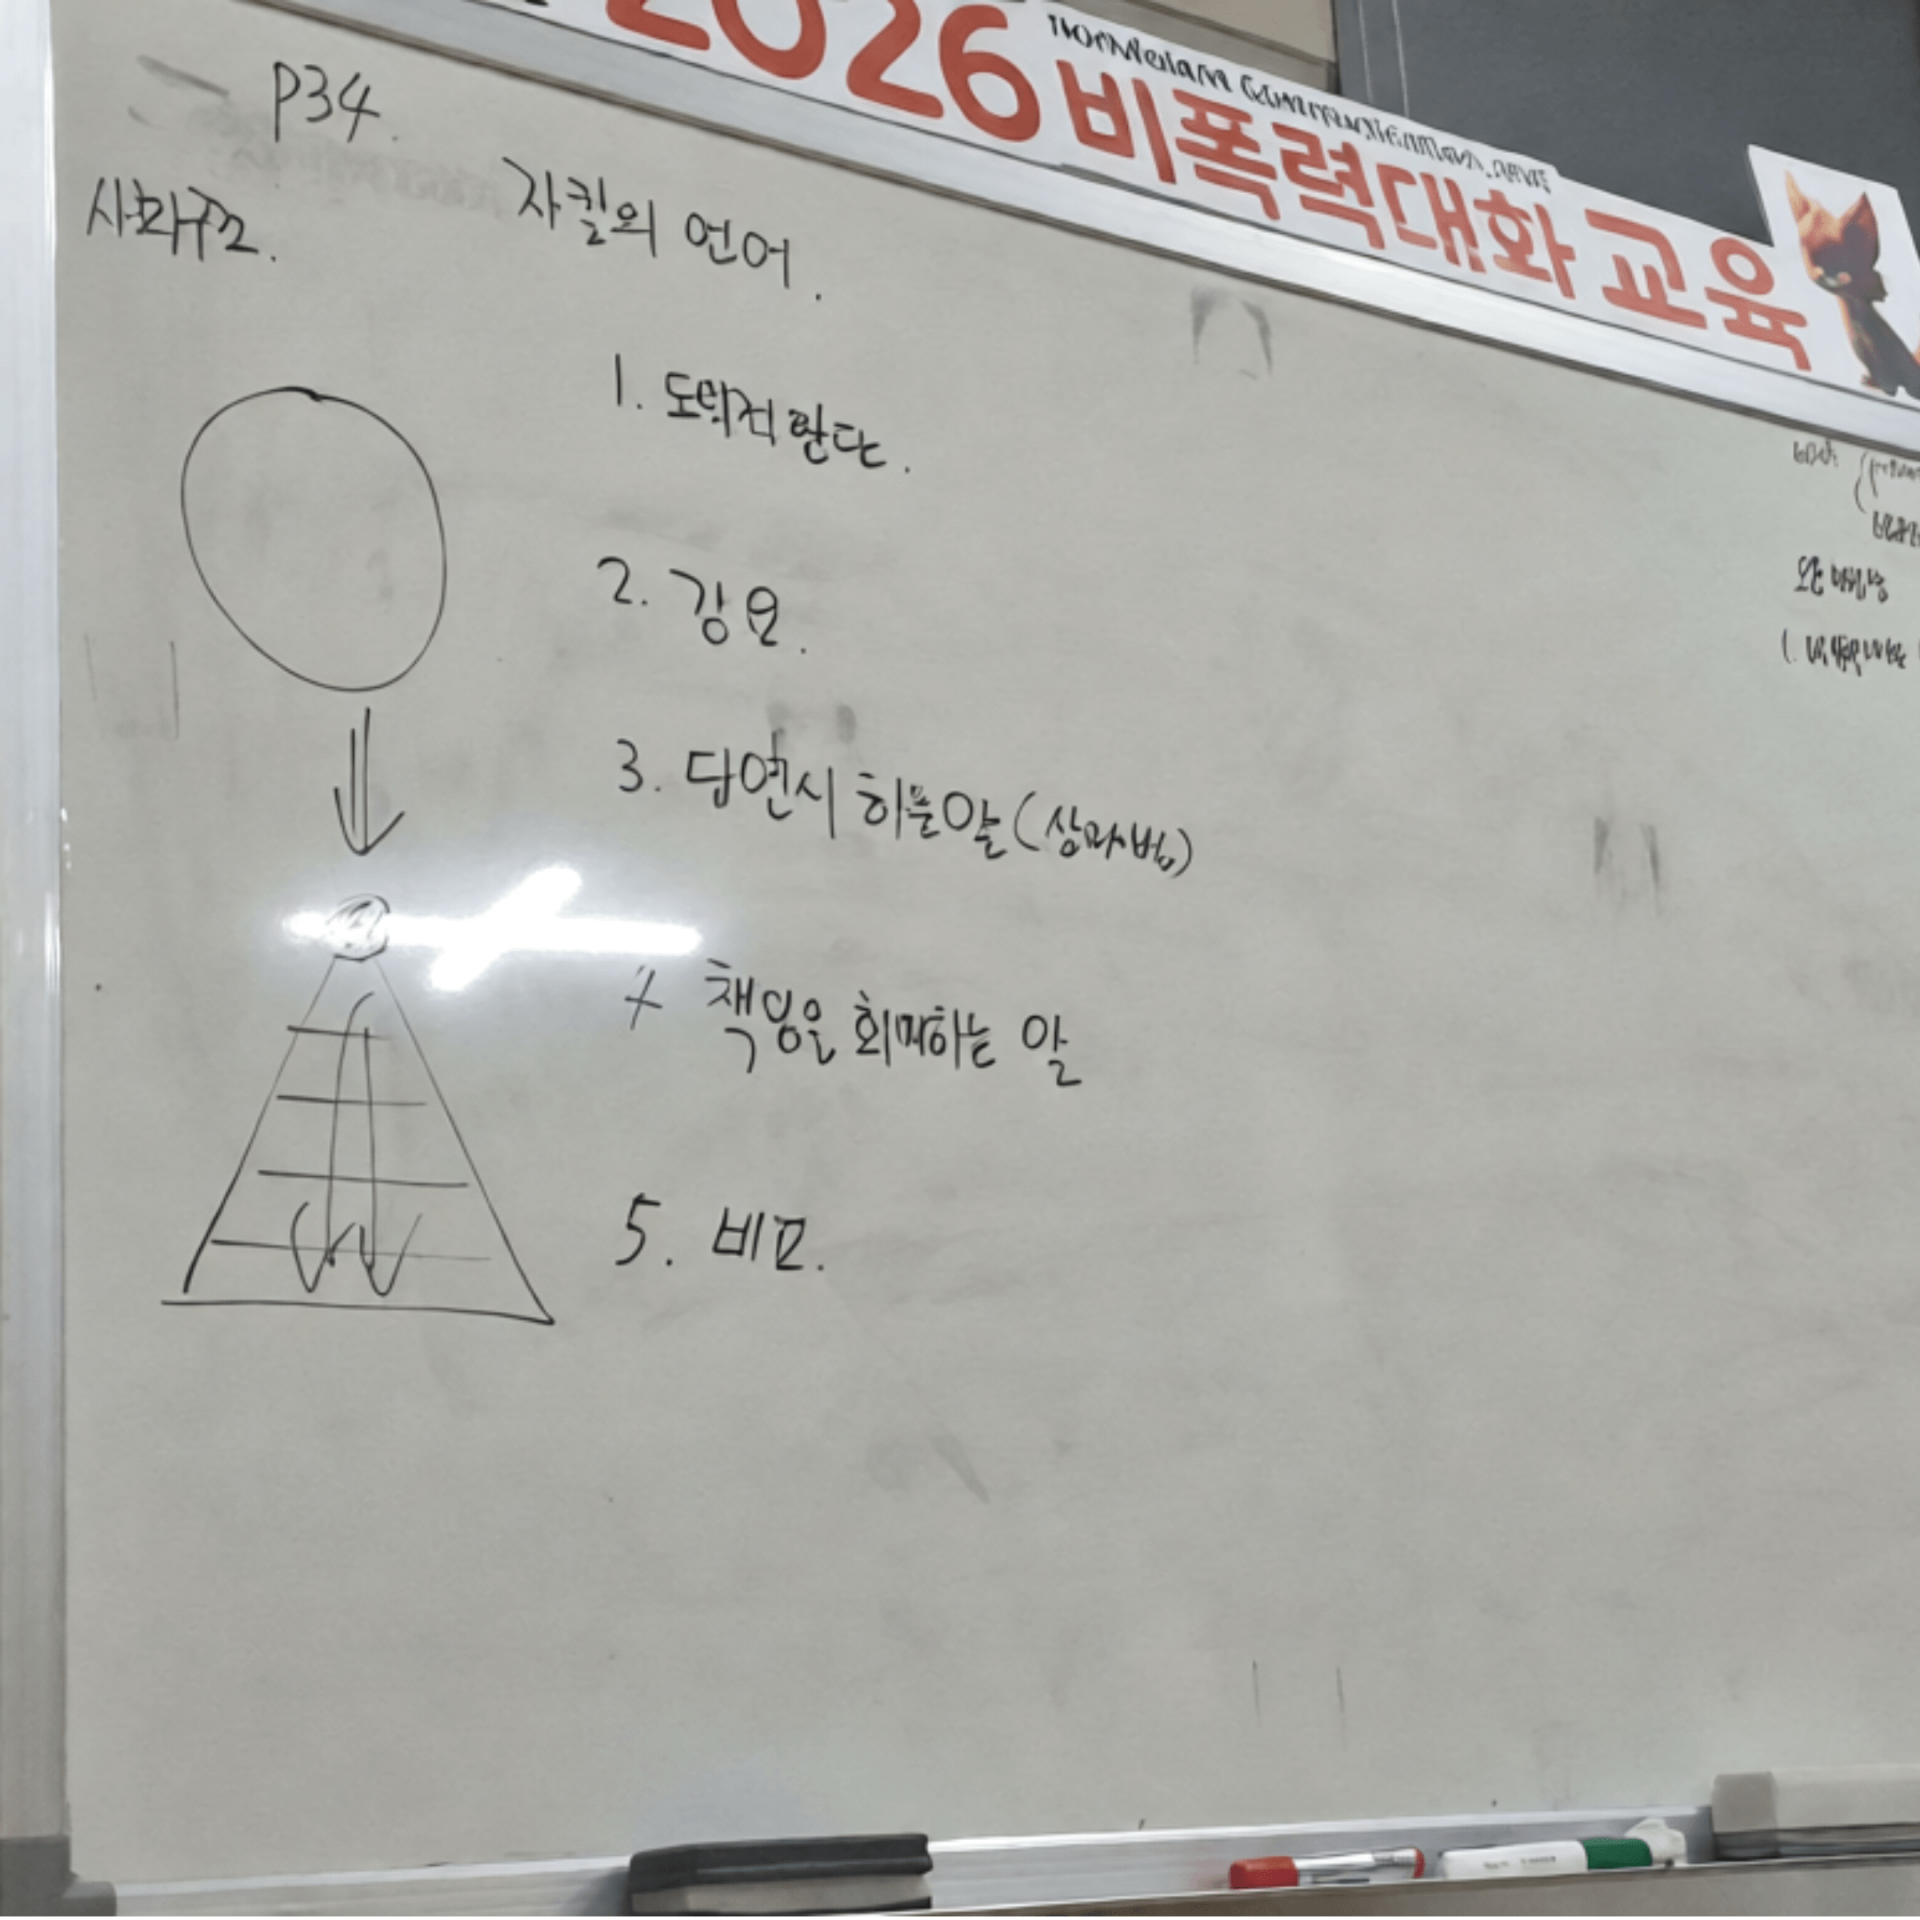 2026 비폭력대화 교육
P34.
사회구조.
자칼의 언어.
1. 도덕적 판단.
2. 강요.
3. 당연시 하는 말 (상과 벌)
4 책임을 회피하는 말
5. 비교.